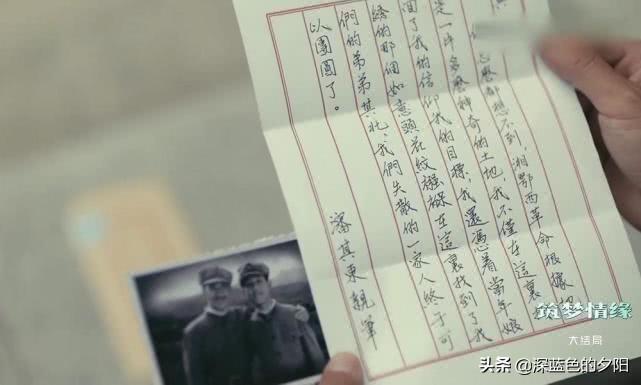 怎麼都想不到,湘鄂西革命根據地
是一片多麼神奇的土地我不僅在這裏
回了我的信仰我的目標,我還憑着當年娘
繡的那個如意頭花紋襁褓在這裏找到了我
們的弟弟其北,我們失散的一家人終于可
以團圓了。
潘其東親筆
筑梦情缘
大结局
头条 @深蓝色的夕阳